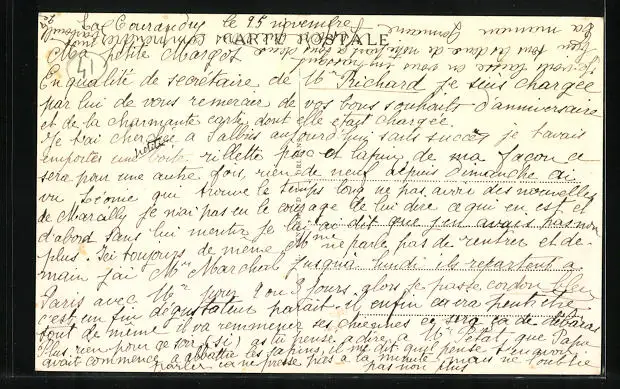 La Couraudus le 25 novembre
CARTE POSTALE
Ma petite Margot
En qualité de secrétaire de Mr Richard je suis chargée
par lui de vous remercier de vos bons souhaits d'anniversaire
et de la charmante carte dont elle était chargée.
Je t'ai cherchée à Salbris aujourd'hui sans succès je t'avais
emporter une petite boite rillette porc et lapin de ma façon ce
sera pour une autre fois, rien de neuf depuis dimanche ai
vu Léome qui trouve le temps long ne pas avoir des nouvelles
de Marcilly je n'ai pas eu le courage de lui dire ce qui en est et
d'abord sans lui mentir je lui ai dit que j'en avais pas non
plus. Ici toujours de même Mme ne parle pas de rentrer et de-
main j'ai Mme Marchal jusqu'à lundi ils repartent à
Paris avec Mr pour 2 ou 3 jours, alors je passe cordon bleu
c'est un fin dégustateur parait il enfin ca ira peut être
tout de même il va remmener ses chiennes ce sera ça de débarras
Plus rien pour ce soir, si, as tu pensé a dire à Mr Petat que Papa
avait commencé a abattre les sapins, il me dit que pense t'en avoir
parler ca ne presse pas à la minute mais ne l'oublie
pas non plus